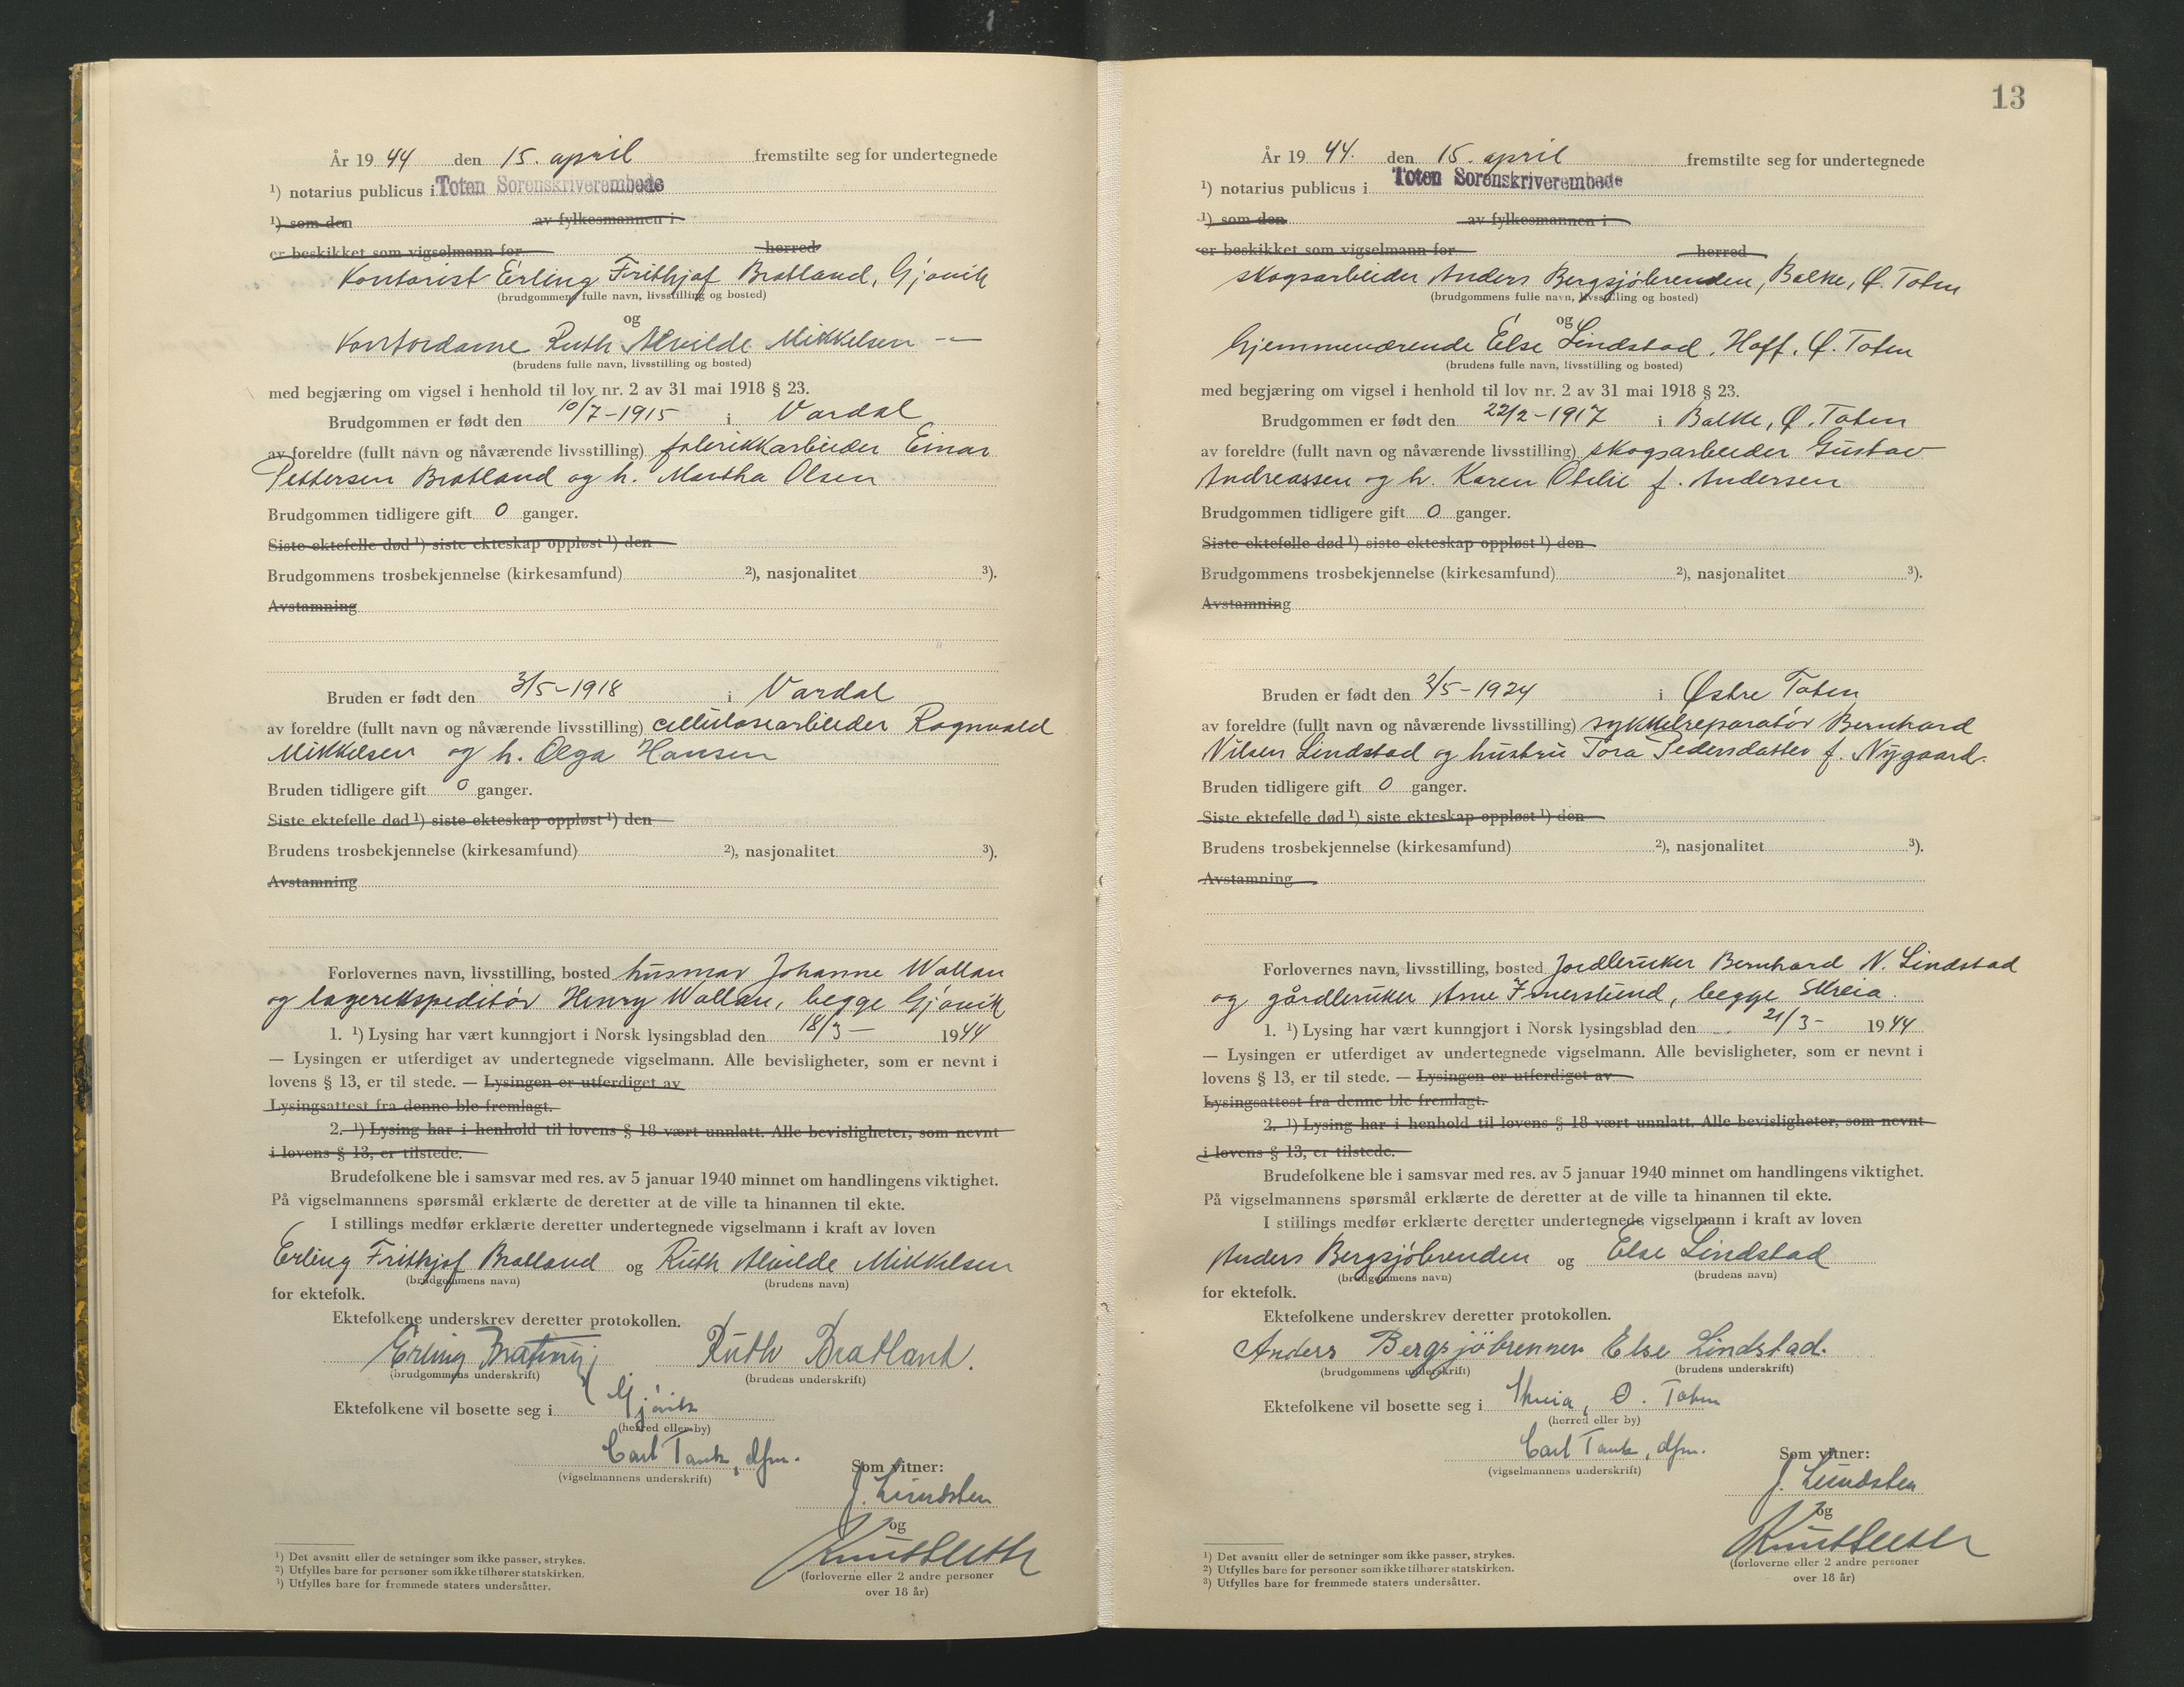 År 1944 den 15. april fremstilte seg for undertegnede
¹) notarius publicus i Toten Sorenskriverembede
¹) som den av fylkesmannen i
er beskikket som vigselmann for herred
Kontorist Erling Frithjof Bratland, Gjøvik
(brudgommens fulle navn, livsstilling og bosted)
og
Kontordame Ruth Alvilde Mikkelsen -"-
(brudens fulle navn, livsstilling og bosted)
med begjæring om vigsel i henhold til lov nr. 2 av 31 mai 1918 § 23.
Brudgommen er født den 10/7-1915 i Vardal
av foreldre (fullt navn og nåværende livsstilling) fabrikkarbeider Einar
Pettersen Bratland og h. Martha Olsen
Brudgommen tidligere gift 0 ganger.
Siste ektefelle død ¹) siste ekteskap oppløst ¹) den
Brudgommens trosbekjennelse (kirkesamfund) ²), nasjonalitet ³).
Avstamning
Bruden er født den 3/5-1918 i Vardal
av foreldre (fullt navn og nåværende livsstilling) cellulosearbeider Ragnvald
Mikkelsen og h. Olga Hansen
Bruden tidligere gift 0 ganger.
Siste ektefelle død ¹) siste ekteskap oppløst ¹) den
Brudens trosbekjennelse (kirkesamfund) ²), nasjonalitet ³).
Avstamning
Forlovernes navn, livsstilling, bosted husmor Johanne Wollan
og lagerekspeditør Henry Wollan, begge Gjøvik
1. ¹) Lysing har vært kunngjort i Norsk lysingsblad den 18/3- 1944
— Lysingen er utferdiget av undertegnede vigselmann. Alle bevisligheter, som er nevnt i
lovens § 13, er til stede. — Lysingen er utferdiget av
Lysingsattest fra denne ble fremlagt.
2. ¹) Lysing har i henhold til lovens § 18 vært unnlatt. Alle bevisligheter, som nevnt
i lovens § 13, er tilstede.
Brudefolkene ble i samsvar med res. av 5 januar 1940 minnet om handlingens viktighet.
På vigselmannens spørsmål erklærte de deretter at de ville ta hinannen til ekte.
I stillings medfør erklærte deretter undertegnede vigselmann i kraft av loven
Erling Frithjof Bratland og Ruth Alvilde Mikkelsen
(brudgommens navn) (brudens navn)
for ektefolk.
Ektefolkene underskrev deretter protokollen.
Erling Ruth Bratland.
(brudgommens underskrift) (brudens underskrift)
Ektefolkene vil bosette seg i Gjøvik
(herred eller by)
Carl Tank, dfm.
(vigselmannens underskrift)
Som vitner:
J. Lundsten
og
(forloverne eller 2 andre personer
over 18 år)
¹) Det avsnitt eller de setninger som ikke passer, strykes.
²) Utfylles bare for personer som ikke tilhører statskirken.
³) Utfylles bare for fremmede staters undersåtter.
13
År 1944. den 15. april fremstilte seg for undertegnede
¹) notarius publicus i Toten Sorenskriverembede
¹) som den av fylkesmannen i
er beskikket som vigselmann for herred
skogsarbeider Anders Bergsjøbrenden, Balke, Ø. Toten
(brudgommens fulle navn, livsstilling og bosted)
og
Hjemmeværende Else Lindstad, Hoff, Ø. Toten
(brudens fulle navn, livsstilling og bosted)
med begjæring om vigsel i henhold til lov nr. 2 av 31 mai 1918 § 23.
Brudgommen er født den 22/2-1917 i Balke, Ø. Toten
av foreldre (fullt navn og nåværende livsstilling) skogsarbeider Gustav
Andreassen og h. Karen Otilie f. Andersen
Brudgommen tidligere gift 0 ganger.
Siste ektefelle død ¹) siste ekteskap oppløst ¹) den
Brudgommens trosbekjennelse (kirkesamfund) ²), nasjonalitet ³).
Avstamning
Bruden er født den 2/5-1924 i Østre Toten
av foreldre (fullt navn og nåværende livsstilling) sykkelreparatør Bernhard
Nilsen Lindstad og hustru Tora Pedersdatter f. Nygaard.
Bruden tidligere gift 0 ganger.
Siste ektefelle død ¹) siste ekteskap oppløst ¹) den
Brudens trosbekjennelse (kirkesamfund) ²), nasjonalitet ³).
Avstamning
Forlovernes navn, livsstilling, bosted Jordbruker Bernhard N. Lindstad
og gårdbruker Arne begge Skreia.
1. ¹) Lysing har vært kunngjort i Norsk lysingsblad den 21/3- 1944
— Lysingen er utferdiget av undertegnede vigselmann. Alle bevisligheter, som er nevnt i
lovens § 13, er til stede. — Lysingen er utferdiget av
Lysingsattest fra denne ble fremlagt.
2. ¹) Lysing har i henhold til lovens § 18 vært unnlatt. Alle bevisligheter, som nevnt
i lovens § 13, er tilstede.
Brudefolkene ble i samsvar med res. av 5 januar 1940 minnet om handlingens viktighet.
På vigselmannens spørsmål erklærte de deretter at de ville ta hinannen til ekte.
I stillings medfør erklærte deretter undertegnede vigselmann i kraft av loven
Anders Bergsjøbrenden og Else Lindstad
(brudgommens navn) (brudens navn)
for ektefolk.
Ektefolkene underskrev deretter protokollen.
Anders Bergsjöbrennen Else Lindstad.
(brudgommens underskrift) (brudens underskrift)
Ektefolkene vil bosette seg i Skreia, Ø. Toten
(herred eller by)
Carl Tank, dfm.
(vigselmannens underskrift)
Som vitner:
J. Lundsten
og
(forloverne eller 2 andre personer
over 18 år)
¹) Det avsnitt eller de setninger som ikke passer, strykes.
²) Utfylles bare for personer som ikke tilhører statskirken.
³) Utfylles bare for fremmede staters undersåtter.